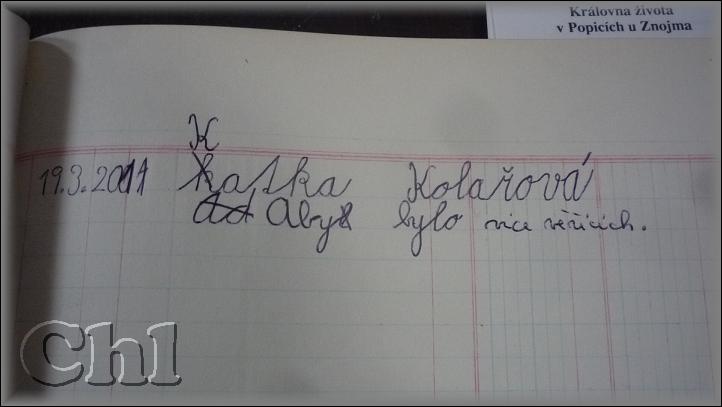 Královna života
v Popicích u Znojma
K
19.3.2011 Katka Kolařová
Aby bylo více věřících.
Chl